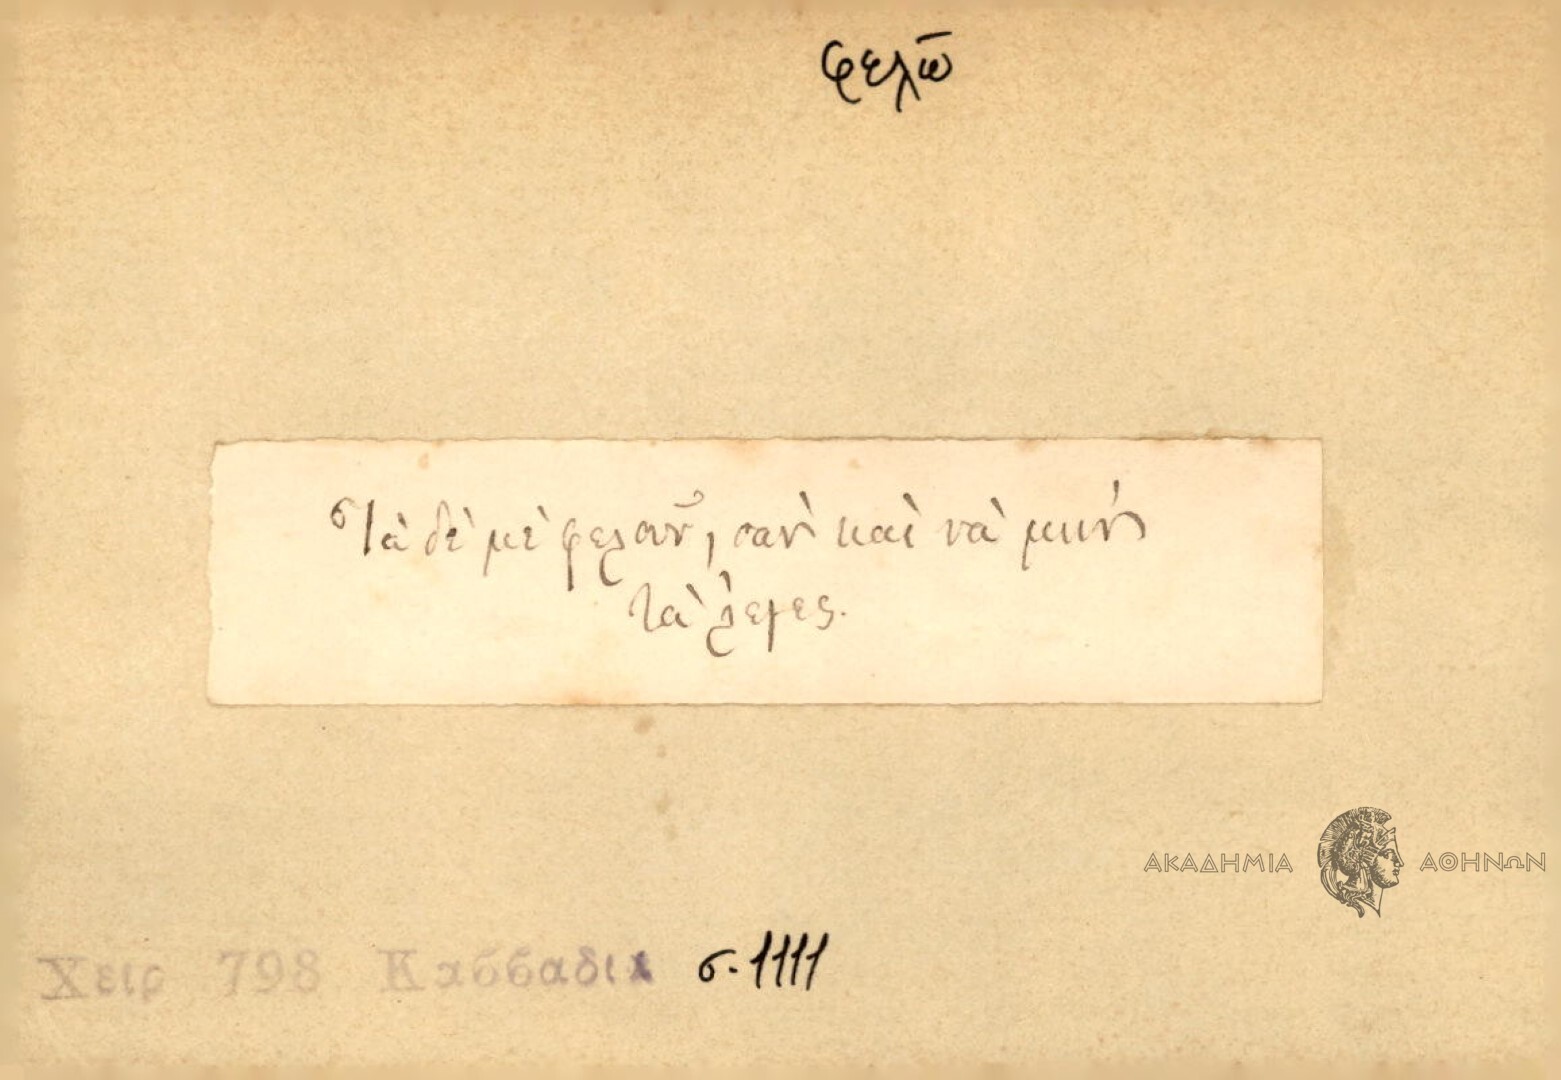 φελῶ
Τὰ δὲ μὲ φελοῦν, σὰν καὶ νὰ μὴν
τὰ λεγες.
ΑΚΑΔΗΜΙΑ ΑΘΗΝΩΝ
Χειρ 798 Καββαδία σ. 1111